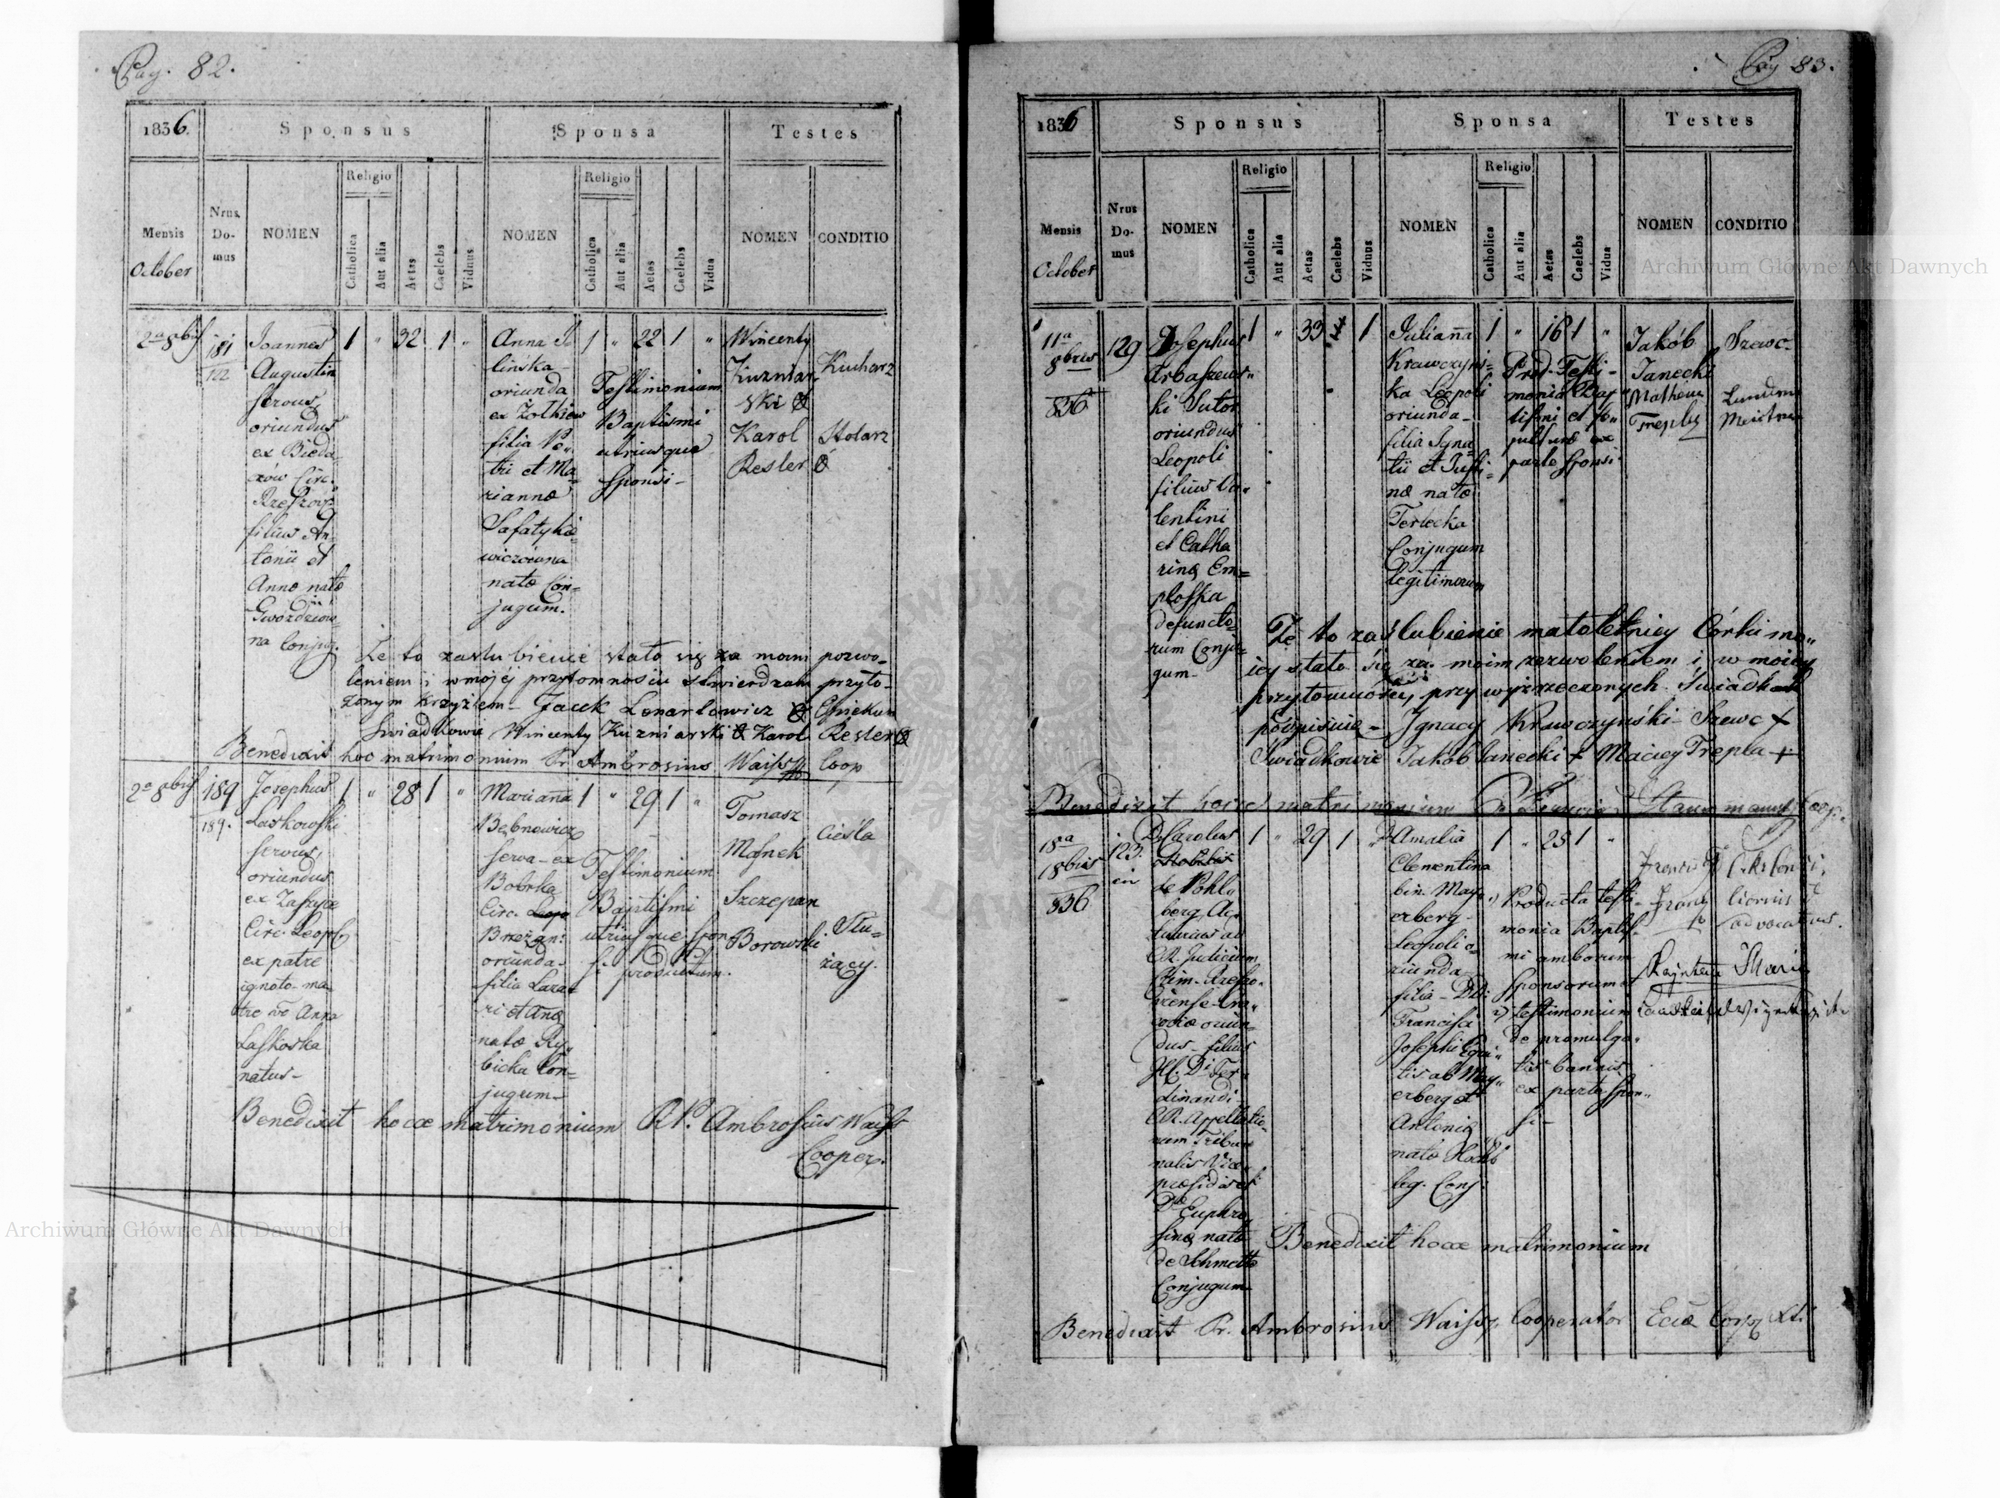 Pag. 82.
1836.
Sponsus
Sponsa
Testes
Mensis
October
Nrus
Do-
mus
NOMEN
Religio
Catholica
Aut alia
Aetas
Caelebs
Viduus
NOMEN
Religio
Catholica
Aut alia
Aetas
Caelebs
Vidua
NOMEN
CONDITIO
2a 8bris
181
122
Joannes
Augustin
servus
oriundus
ex Bieda
czów Circ.
filius An
tonii et
Anna nata
na Conjug.
1 " 32 1 "
Anna
lińska
oriunda
ex Zolkiew
filia Pe-
tri et Ma-
rianna
wiczówna
nata Con-
jugum.
1 " 22 1 "
Testimonium
Baptismi
utriusque
Sponsi-
Wincenty
Kuzniar-
ski
Karol
Resler
Kucharz
Stolarz
Że to zaslubienie stało się za mom pozwo-
leniem i w mojéj przytomnosiu stwierdzam przyło-
żonym krzyżem - Jacek Lenartowicz Opiekun
Swiadkowie Wincenty Kuzniarski Karol Resler
Benedixit hoc matrimonium Pr Ambrosius Waiss Coop
2a 8bris
189
189.
Josephus
Laskowski
servus
oriundus
Circ. Leopl.
ex patre
ignoto ma
tre vo Anna
Laskoska
natus-
1 " 28 1 "
Marianna
Bębnowicz
serva - ex
Bobrka
Circ.
Brzezan:
oriunda-
filia Laza-
ri et Anæ
nata Ry-
bicka Con-
jugum-
1 " 29 1 "
Testimonium
Baptismi
utriusque Spon
si productum.
Tomasz
Majnek
Szczepan
Borowski
Cieśla
Słu-
żący.
Benedixit hocce matrimonium RP. Ambrosius Waiss
Cooper.
Pag 83.
1836
Sponsus
Sponsa
Testes
Mensis
October
Nrus
Do-
mus
NOMEN
Religio
Catholica
Aut alia
Aetas
Caelebs
Viduus
NOMEN
Religio
Catholica
Aut alia
Aetas
Caelebs
Vidua
NOMEN
CONDITIO
11a
8bris
836
129
Josephus
Arbaszews-
ki Sutor
oriundus
Leopoli
filius Va-
lentini
et Catha
rina Em-
ploska
defuncto-
rum Conju
gum-
1 " 33 1
Julianna
Krawczyńs-
ka Leopoli
oriunda-
filia Igna-
tii et Justi-
na nata
Terlecka
Conjugum
legitimorum
1 " 18 1 "
Prod. Testi-
monia Bap-
tismi et
ex
parte Sponsi
Jakób
Janecki
Matheus
Treply
Szewc-
Że to zaślubienie małoletniey Córki mo-
iey stało się za moim zezwoleniem i w moiey
przytomności, przy wyżrzeczonych Świadkach
podpisuię - Jgnacy Krawczyński Szewc +
Świadkowie Jakób Janecki + Maciey Trepla +
Benedixit hocce matrimonium Coop.
18a
8bris
836
123.
D. Carolus
Nobilis
de Pohl
berg, Ac-
tuarius ad
C.R. Judicium
Crim. Rzeszo-
viense
oriun-
dus- filius
Fer-
dinandi
C.R. Appellatio-
num Tribu
nalis Vice
præsidis et
Euphro
sina nata
de Schmett
Conjugum
1 " 29 1 "
Amalia
Clementina
bin. May-
erberg-
Leopoli o-
riunda
filia- DD.
Francisci
Josephi Equi-
tis ab May-
erberg et
Antonia
nata
leg. Conj.
1 " 25 1 "
1) Producta testi-
monia Baptis-
mi amborum
Sponsorum
2) testimonium
de promulga-
tis bannis
ex parte spon-
si-
advocatus.
Benedixit hocce matrimonium
Benedixit Pr. Ambrosius Waiss Cooperator Ecca Corp. Xti.
Archiwum Główne Akt Dawnych
Archiwum Główne Akt Dawnych